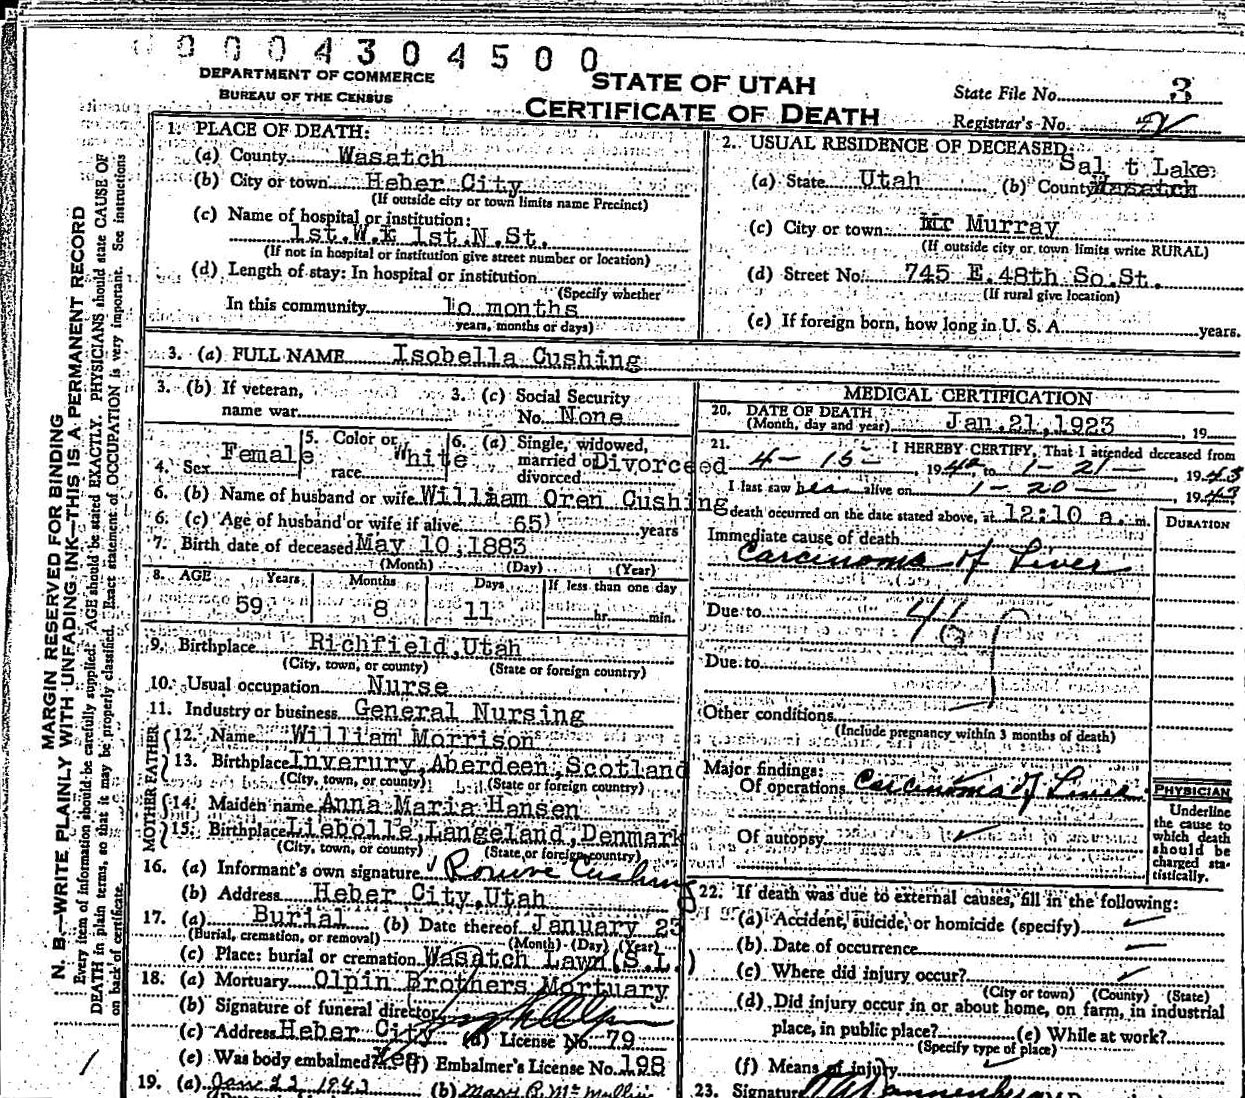 0004304500
DEPARTMENT OF COMMERCE
BUREAU OF THE CENSUS
STATE OF UTAH
CERTIFICATE OF DEATH
State File No. 3
Registrar's No.
MARGIN RESERVED FOR BINDING
N. B.—WRITE PLAINLY WITH UNFADING INK—THIS IS A PERMANENT RECORD
Every item of information should be carefully supplied. AGE should be stated EXACTLY. PHYSICIANS should state CAUSE OF
DEATH in plain terms, so that it may be properly classified. Exact statement of OCCUPATION is very important. See instructions
on back of certificate.
1. PLACE OF DEATH:
(a) County Wasatch
(b) City or town Heber City
(If outside city or town limits name Precinct)
(c) Name of hospital or institution:
1st.W.& 1st.N.St.
(If not in hospital or institution give street number or location)
(d) Length of stay: In hospital or institution
(Specify whether
In this community 10 months
years, months or days)
2. USUAL RESIDENCE OF DECEASED:
Sal t Lake
(a) State Utah (b) County Wasatch
(c) City or town Murray
(If outside city or town limits write RURAL)
(d) Street No. 745 E.48th So.St.
(If rural give location)
(e) If foreign born, how long in U. S. A. years.
3. (a) FULL NAME Isobella Cushing
3. (b) If veteran, name war
3. (c) Social Security No. None
4. Sex Female
5. Color or race White
6. (a) Single, widowed, married or divorced Divorceed
6. (b) Name of husband or wife William Oren Cushing
6. (c) Age of husband or wife if alive 65 years
7. Birth date of deceased May 10,1883
(Month) (Day) (Year)
8. AGE Years Months Days If less than one day
59 8 11 hr. min.
9. Birthplace Richfield,Utah
(City, town, or county) (State or foreign country)
10. Usual occupation Nurse
11. Industry or business General Nursing
FATHER
12. Name William Morrison
13. Birthplace Inverury,Aberdeen,Scotland
(City, town, or county) (State or foreign country)
MOTHER
14. Maiden name Anna Maria Hansen
15. Birthplace Liebolle,Langeland,Denmark
(City, town, or county) (State or foreign country)
16. (a) Informant's own signature Cushing
(b) Address Heber City,Utah
17. (a) Burial (b) Date thereof January 23
(Burial, cremation, or removal) (Month) (Day) (Year)
(c) Place: burial or cremation Wasatch Lawn(S.L.)
18. (a) Mortuary Olpin Brothers Mortuary
(b) Signature of funeral director
(c) Address Heber City (d) License No. 79
(e) Was body embalmed? Yes (f) Embalmer's License No. 198
19. (a) Jan 23 1943 (b) Mary R. McMullin
MEDICAL CERTIFICATION
20. DATE OF DEATH Jan.21,1923, 19
(Month, day and year)
21. I HEREBY CERTIFY, That I attended deceased from
4-15-, 1942, to 1-21-, 1943
I last saw her alive on 1-20-, 1943
death occurred on the date stated above, at 12:10 a. m.
DURATION
Immediate cause of death
Carcinoma of Liver
Due to
Due to
Other conditions
(Include pregnancy within 3 months of death)
Major findings:
Of operations Carcinoma of Liver
Of autopsy
PHYSICIAN
Underline
the cause to
which death
should be
charged sta-
tistically.
22. If death was due to external causes, fill in the following:
(a) Accident, suicide, or homicide (specify)
(b) Date of occurrence
(c) Where did injury occur?
(City or town) (County) (State)
(d) Did injury occur in or about home, on farm, in industrial
place, in public place? (e) While at work?
(Specify type of place)
(f) Means of injury
23. Signature